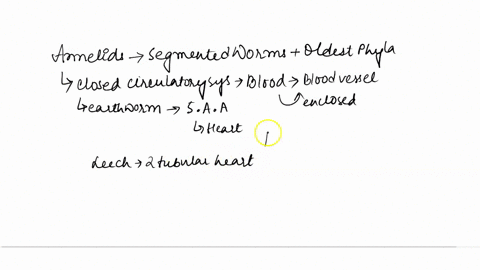 Annelids → Segmented Worms + Oldest Phyla
↳ closed circulatory sys → Blood → Blood vessel
↳ earthworm → 5.A.A ↳ enclosed
↳ Heart
Leech → 2 tubular heart